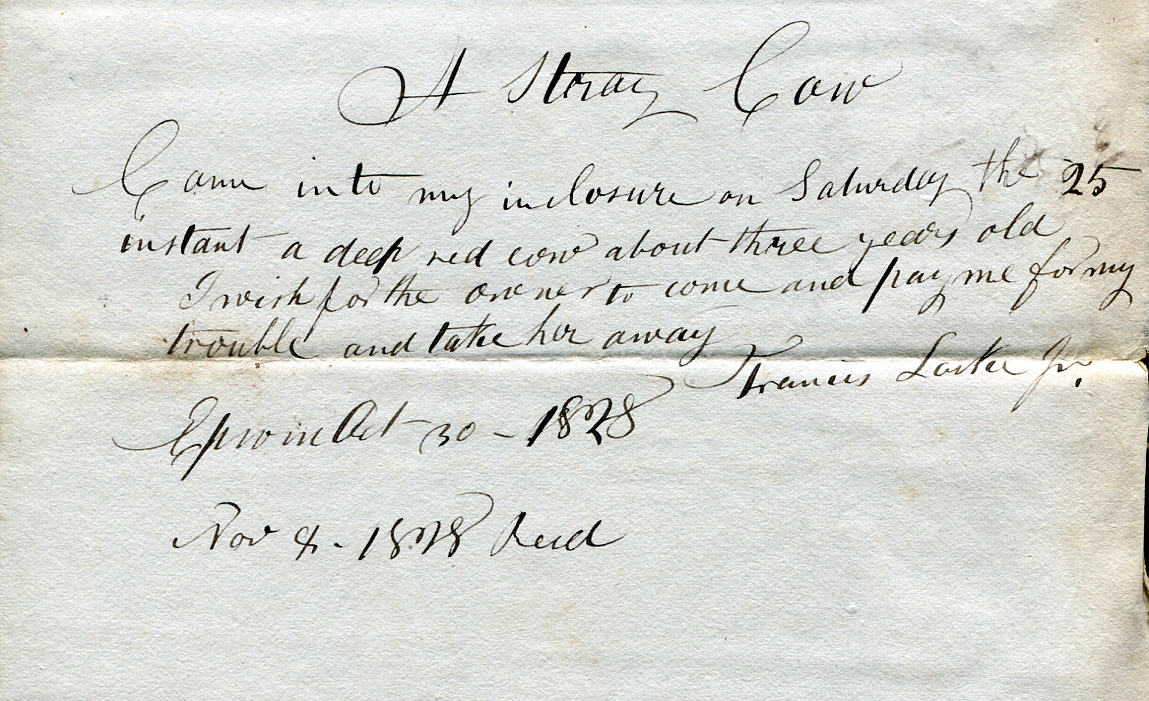 A Stray Cow
Came into my inclosure on Saturday the 25
instant a deep red cow about three years old
I wish for the owner to come and pay me for my
trouble and take her away
Francis Locke Jr.
Epsom Oct 30 - 1828
Nov 8. - 1828 Recd